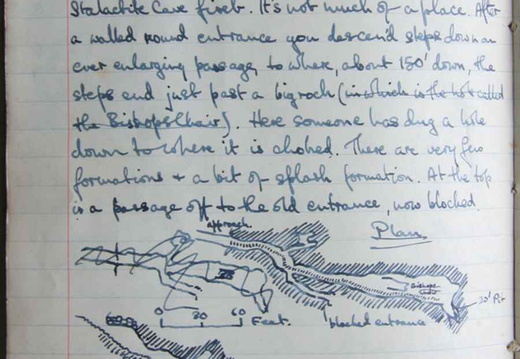 Stalactite Cave first. It's not much of a place. After
a walled round entrance you descend steps down an
ever enlarging passage, to where, about 150' down, the
steps end just past a big rock (in which is the hole called
the Bishops Chair). Here someone has dug a hole
down to where it is choked. There are very few
formations + a bit of splash formation. At the top
is a passage off to the old entrance, now blocked.
approach
Plan
Bishops
20' Pit
0 30 60
Feet.
blocked entrance